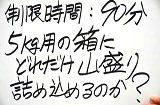 制限時間：90分
5kg用の箱に
どれだけ山盛り
詰め込めるのか？